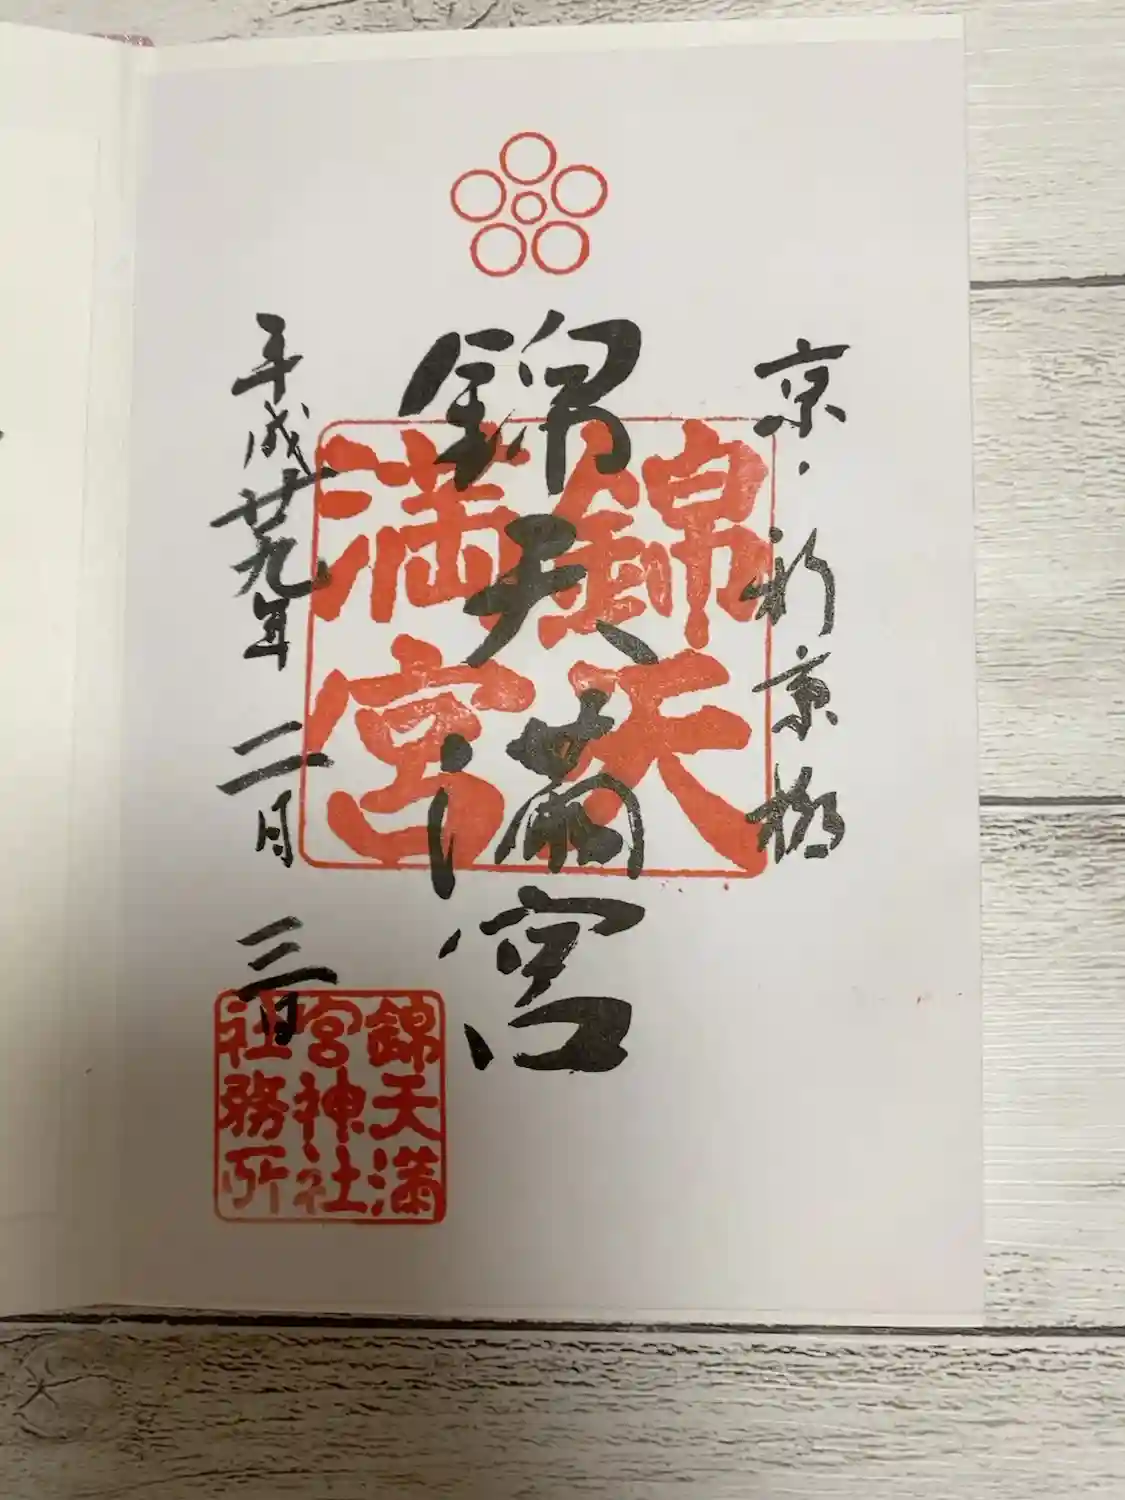 京・新京極
錦天満宮
錦天
満宮
平成廿九年 二月 三日
錦天満
宮神社
社務所